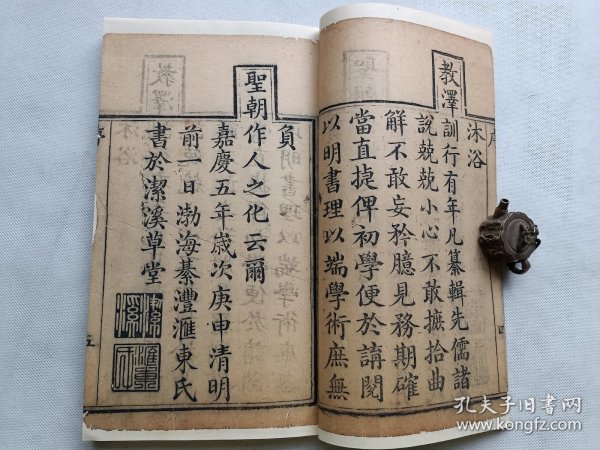 沐浴
教澤訓行有年凡纂輯先儒諸
說兢兢小心不敢摭拾曲
解不敢妄矜臆見務期確
當直捷俾初學便於講閱
以明書理以端學術庶無
負
聖朝作人之化云爾
嘉慶五年歲次庚申清明
前一日渤海綦澧滙東氏
書於潔溪草堂
序
四
五
孔夫子旧书网
www.kongfz.com